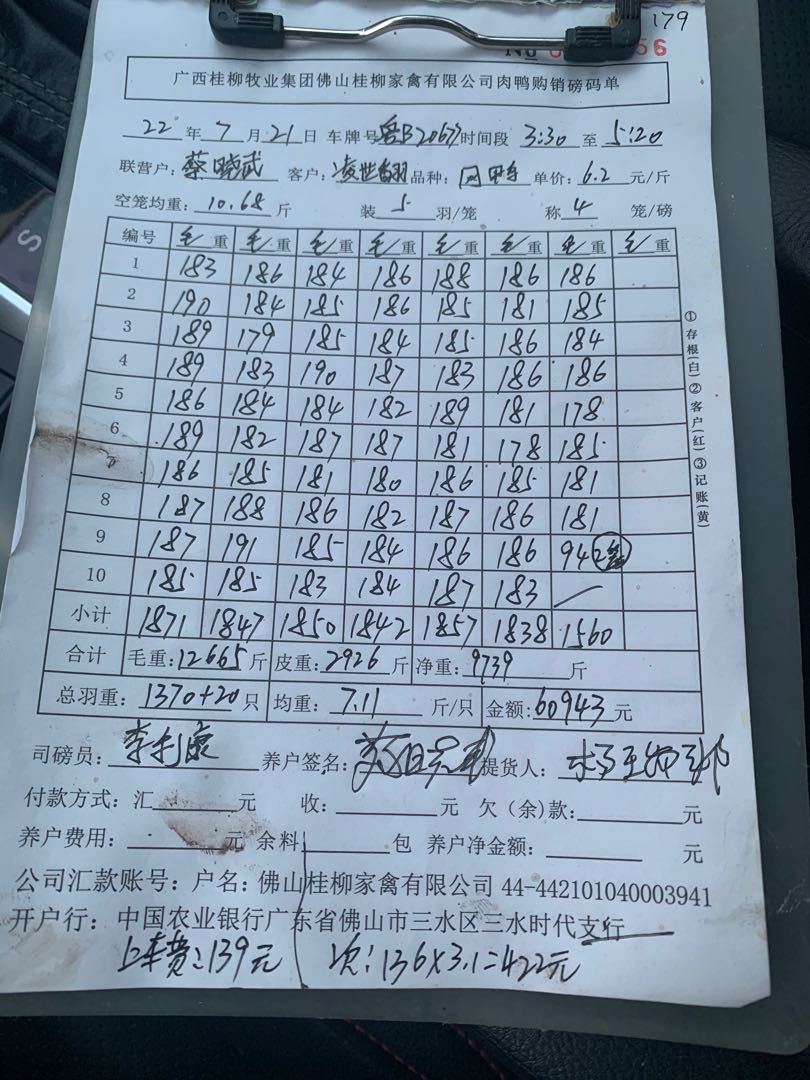 179
No 56
广西桂柳牧业集团佛山桂柳家禽有限公司肉鸭购销磅码单
22 年 7 月 21 日 车牌号 粤B20677 时间段 3:30 至 5:20
联营户: 蔡晓武 客户: 凌世翻 品种: 单价: 6.2 元/斤
空笼均重: 10.68 斤 装 5 羽/笼 称 4 笼/磅
编号 毛重 毛重 毛重 毛重 毛重 毛重 毛重 毛重
1 183 186 184 186 188 186 186
2 190 184 185 186 185 181 185
3 189 179 185 184 185 186 184
4 189 183 190 187 183 186 186
5 186 184 184 182 189 181 178
6 189 182 187 187 181 178 185
7 186 185 181 180 186 185 181
8 187 188 186 182 187 186 181
9 187 191 185 184 186 186 94
10 185 185 183 184 187 183 /
小计 1871 1847 1850 1842 1857 1838 1560
合计 毛重: 12665 斤 皮重: 2926 斤 净重: 9739 斤
总羽重: 1370+20 只 均重: 7.11 斤/只 金额: 60943 元
①存根(白)②客户(红)③记账(黄)
司磅员: 养户签名: 提货人:
付款方式: 汇 元 收: 元 欠(余)款: 元
养户费用: 元 余料 包 养户净金额: 元
公司汇款账号: 户名: 佛山桂柳家禽有限公司 44-442101040003941
开户行: 中国农业银行广东省佛山市三水区三水时代支行
上车费: 139元 次: 136×3.1=422元